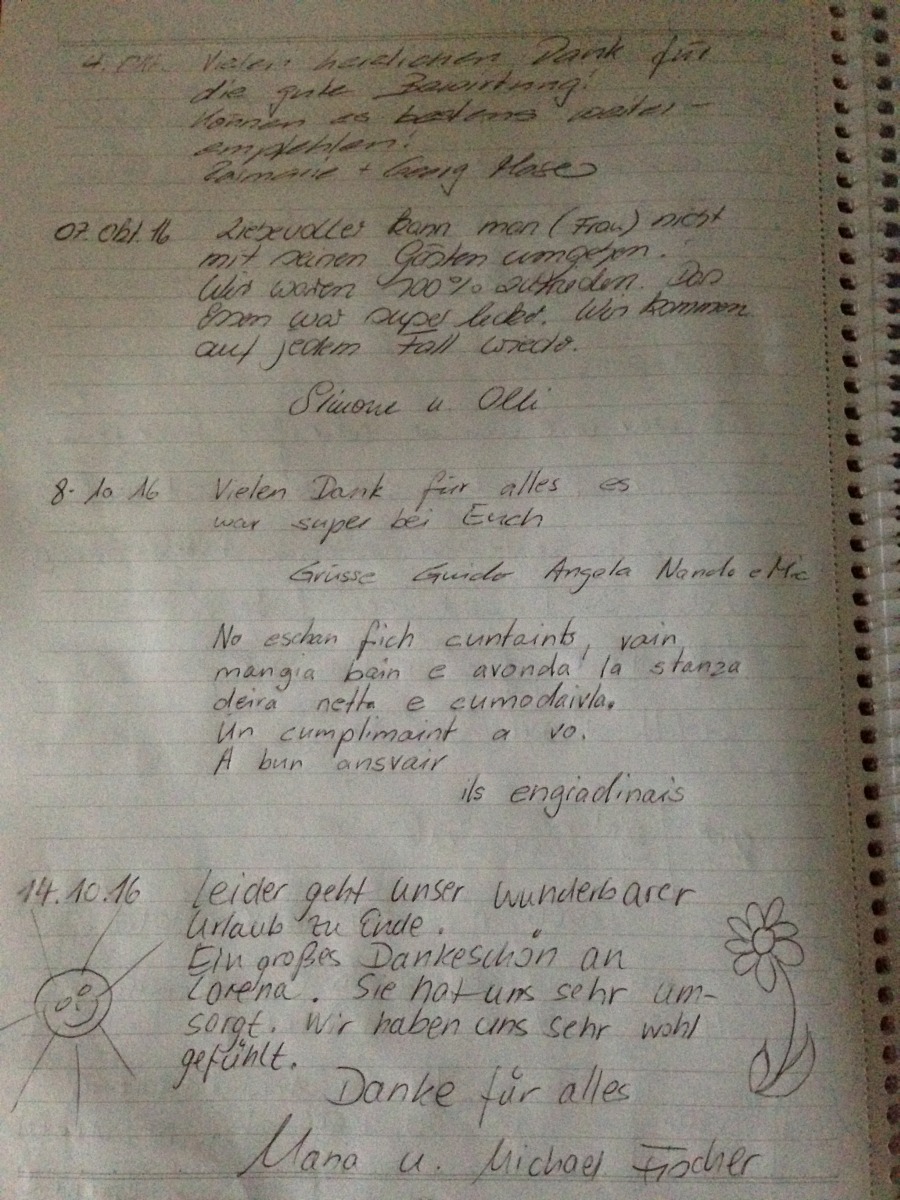 Vielen herzlichen Dank für
die gute Bewirtung!
Können es bestens weiter-
empfehlen!
+ Georg
07. Okt. 16 Liebevoller kann man (Frau) nicht
mit seinen Gästen umgehen.
Wir waren 100% zufrieden. Das
Essen war super lecker. Wir kommen
auf jedem Fall wieder.
Simone u. Olli
8. 10 16 Vielen Dank für alles es
war super bei Euch
Grüsse Guido Angela Nando e Mic
No eschan fich cuntaints, vain
mangia bain e avonda la stanza
deira netta e cumodaivla.
Ün cumplimaint a vo.
A bun ansvair
ils engiadinais
14.10.16 Leider geht unser wunderbarer
Urlaub zu Ende.
Ein großes Dankeschön an
Lorena. Sie hat uns sehr um-
sorgt. Wir haben uns sehr wohl
gefühlt.
Danke für alles
u. Michael Fischer